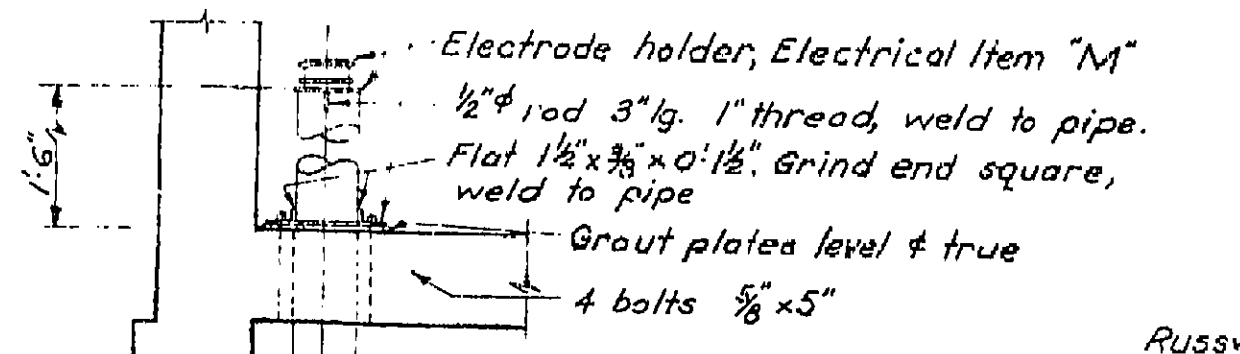 Electrode holder, Electrical Item "M"
½"ϕ rod 3"lg. 1" thread, weld to pipe.
Flat 1½" x ⅜" x 0'-1½". Grind end square,
weld to pipe
1'-6"
Grout plates level & true
4 bolts ⅝" x 5"